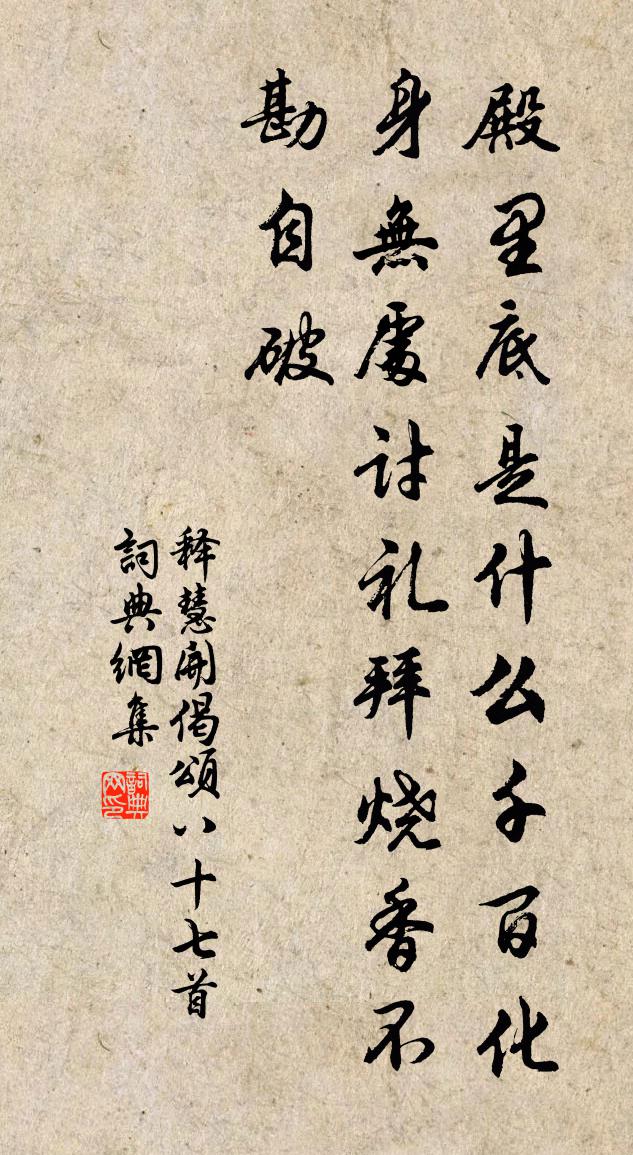 殿里底是什么千百化
身無處討礼拜烧香不
勘自破
释慧開偈頌八十七首
詞典網集
詞典
网印